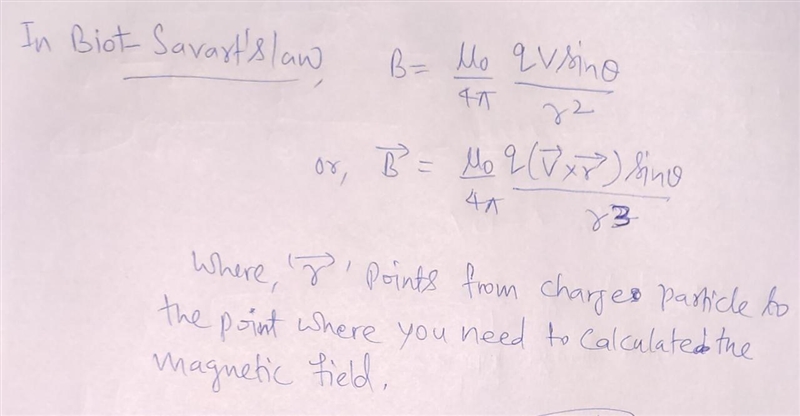 In Biot-Savart's law, B = μ₀/4π qVsinθ/r²
or, B⃗ = μ₀/4π q(V⃗×r⃗)sinθ/r³
Where, 'r⃗' Points from charges particle to
the point where you need to Calculated the
magnetic field.